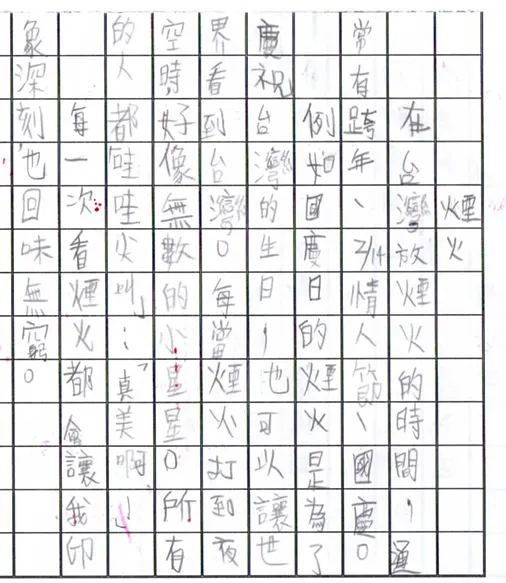 煙火
在台灣放煙火的時間，通
常有跨年、2/14情人節、國慶。
例如國慶日的煙火是為了
慶祝台灣的生日，也可以讓世
界看到台灣。每當煙火打到夜
空時好像無數的小星星。所有
的人都哇哇尖叫；「真美啊」！
每一次看煙火都會讓我印
象深刻也回味無窮。